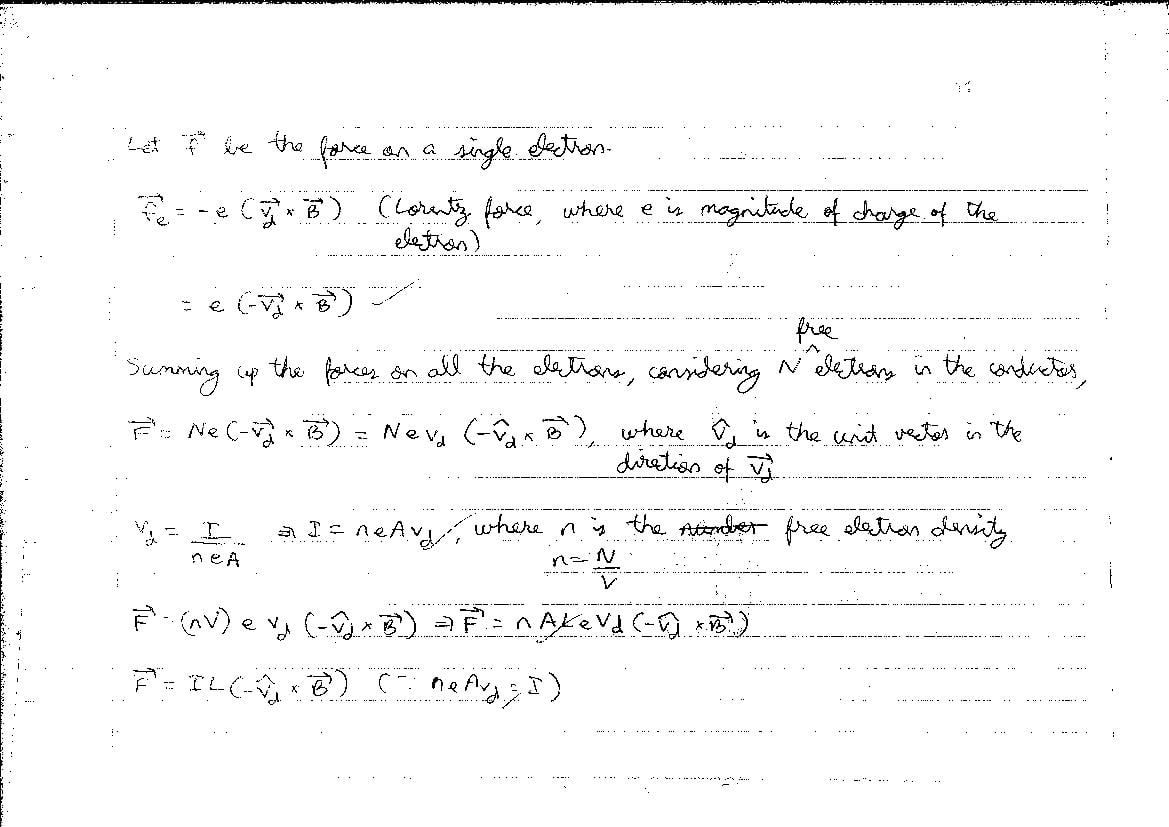 Let f⃗ be the force on a single electron.
f⃗e = -e (v⃗d × B⃗) (Lorentz force, where e is magnitude of charge of the
electron)
= e (-v⃗d × B⃗) ✓
free
Summing up the forces on all the eletrons, considering N ^ eletrons in the conductor,
F⃗ = Ne (-v⃗d × B⃗) = N e vd (-v̂d × B⃗), where v̂d is the unit vector in the
diretion of v⃗d
vd = I/neA ⇒ I = neAvd, where n is the number free eletron density
n = N/V
F⃗ = (nV) e vd (-v̂d × B⃗) ⇒ F⃗ = n A L e vd (-v̂d × B⃗)
F⃗ = IL (-v̂d × B⃗) (∵ neAvd = I)